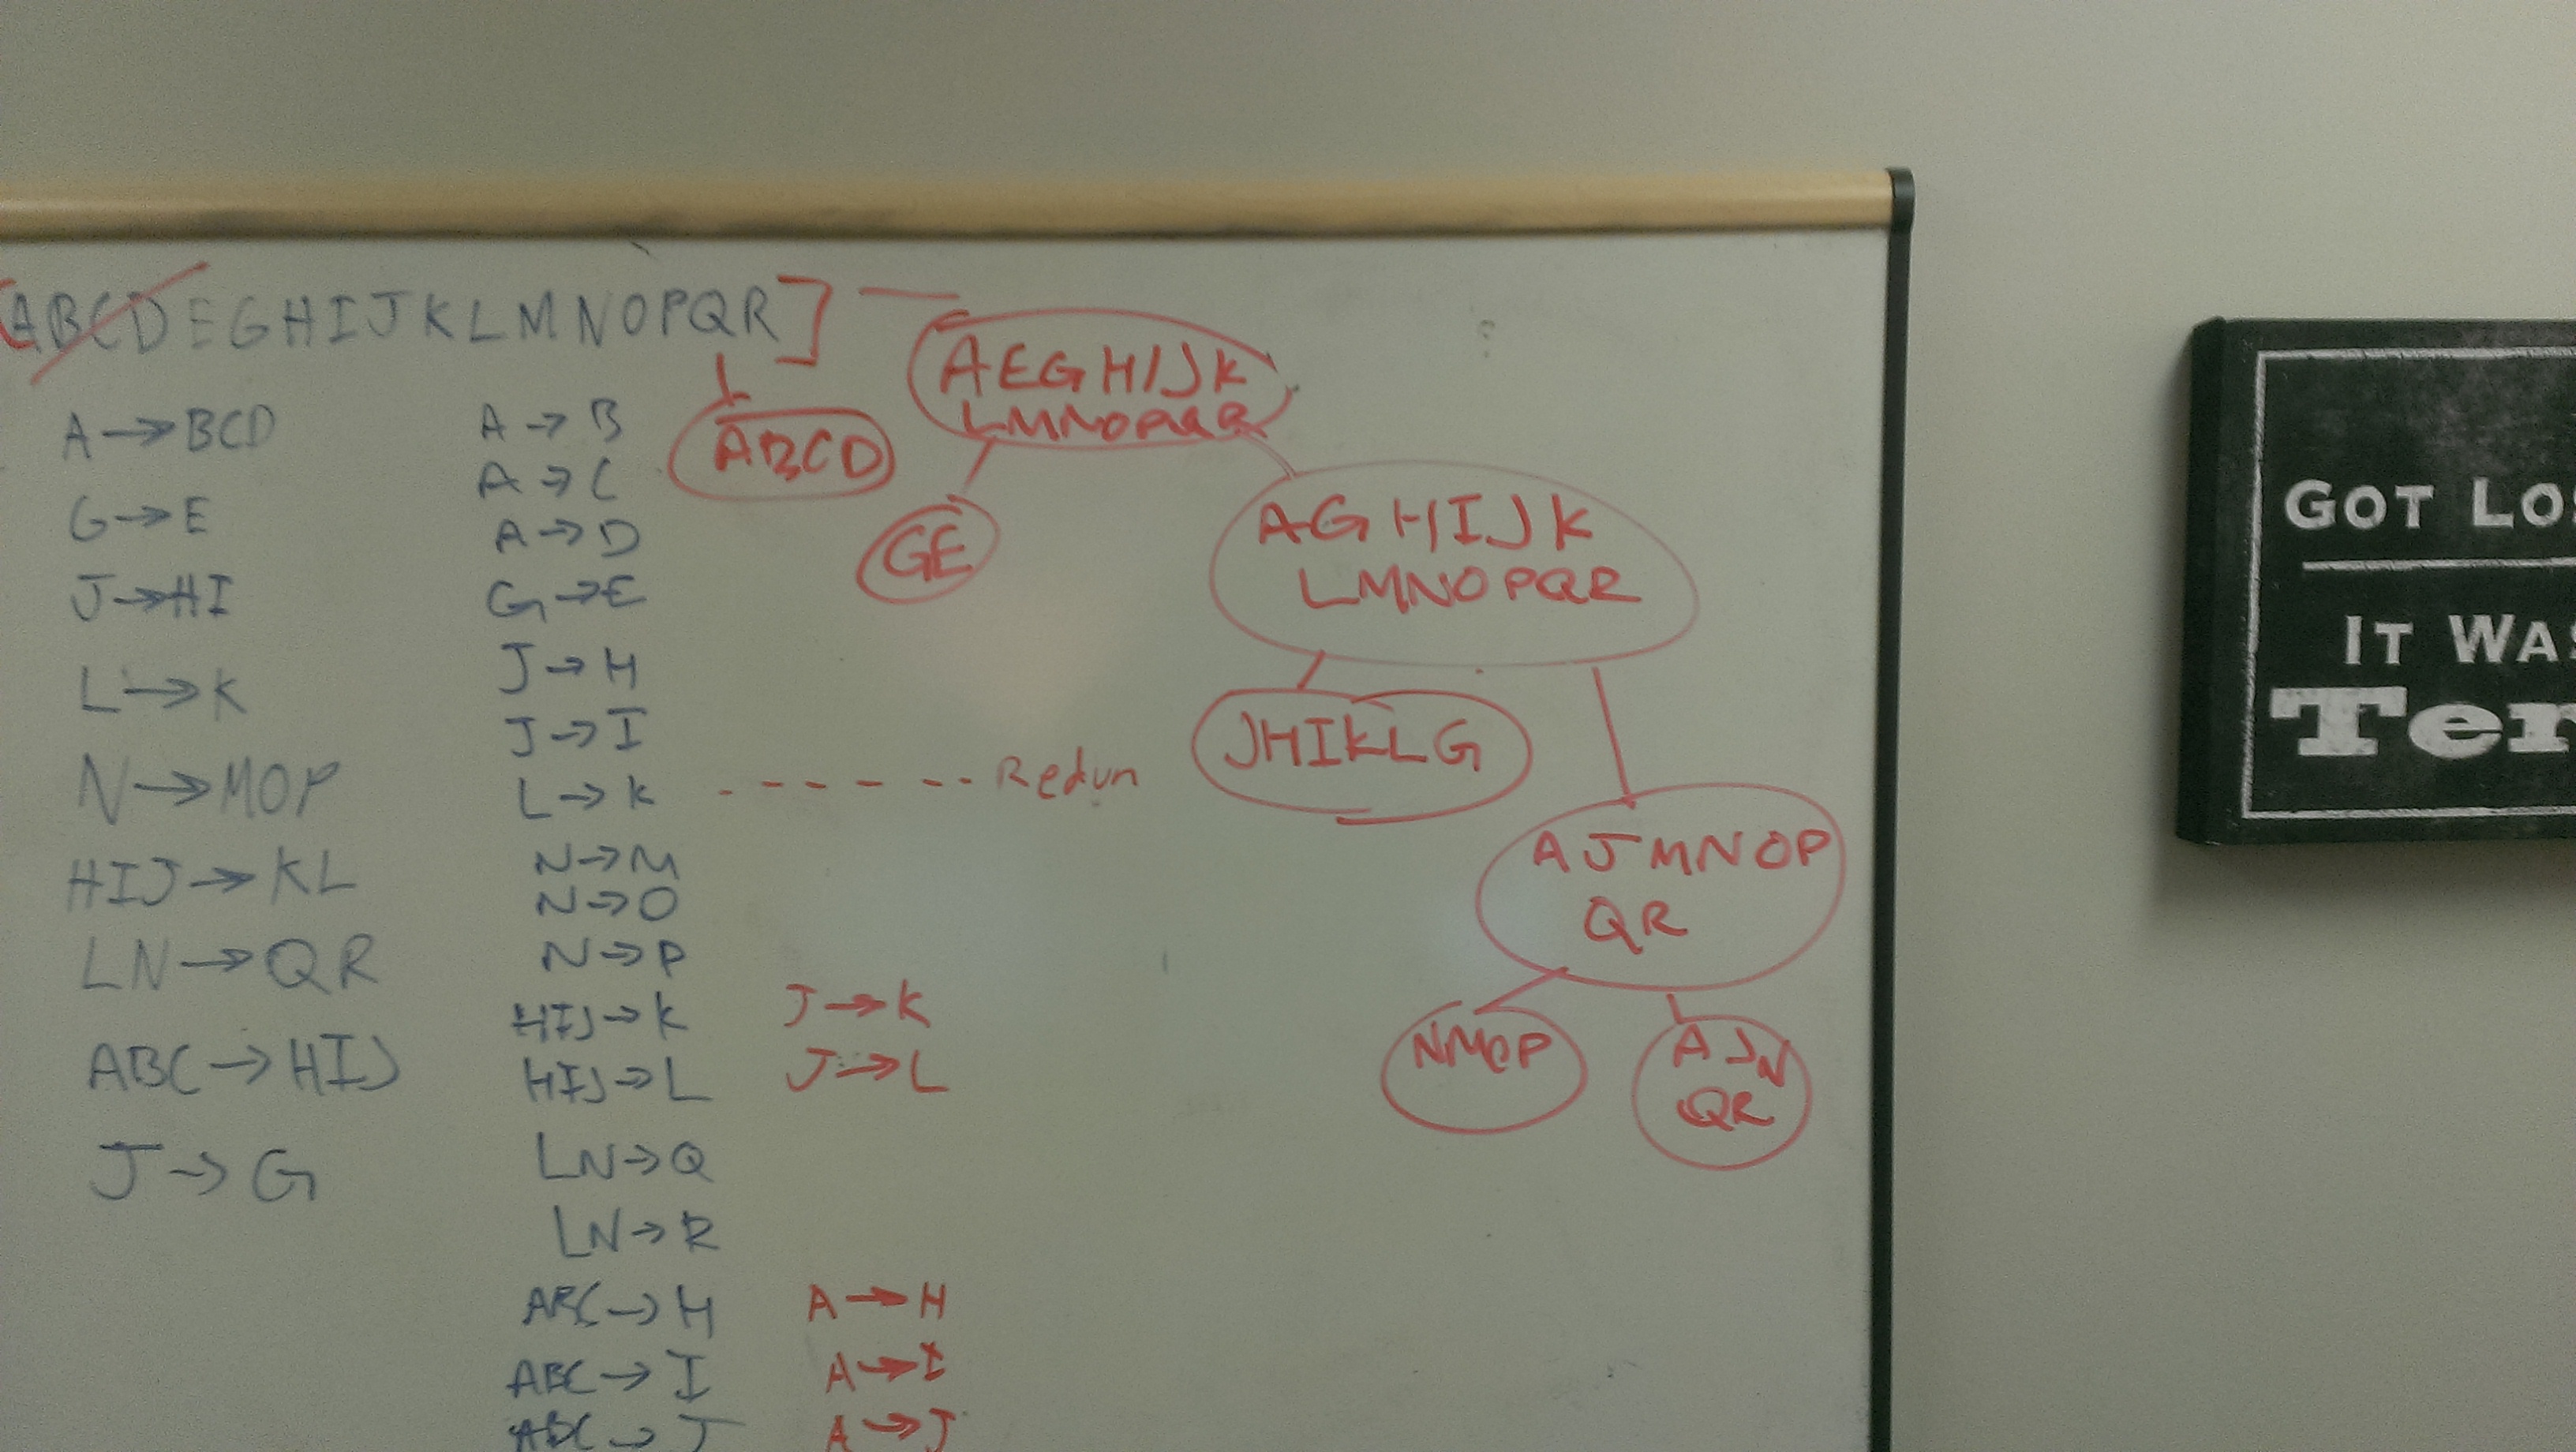 ABCDEGHIJKLMNOPQR]
A→BCD
G→E
J→HI
L→K
N→MOP
HIJ→KL
LN→QR
ABC→HIJ
J→G
A→B
A→C
A→D
G→E
J→H
J→I
L→K - - - - - - Redun
N→M
N→O
N→P
HIJ→K J→K
HIJ→L J→L
LN→Q
LN→R
ABC→H A→H
ABC→I A→I
ABC→J A→J
ABCD
AEGHIJK
LMNOPQR
GE
AGHIJK
LMNOPQR
JHIKLG
AJMNOP
QR
NMOP
AJN
QR
GOT LO
IT WAS
Ter